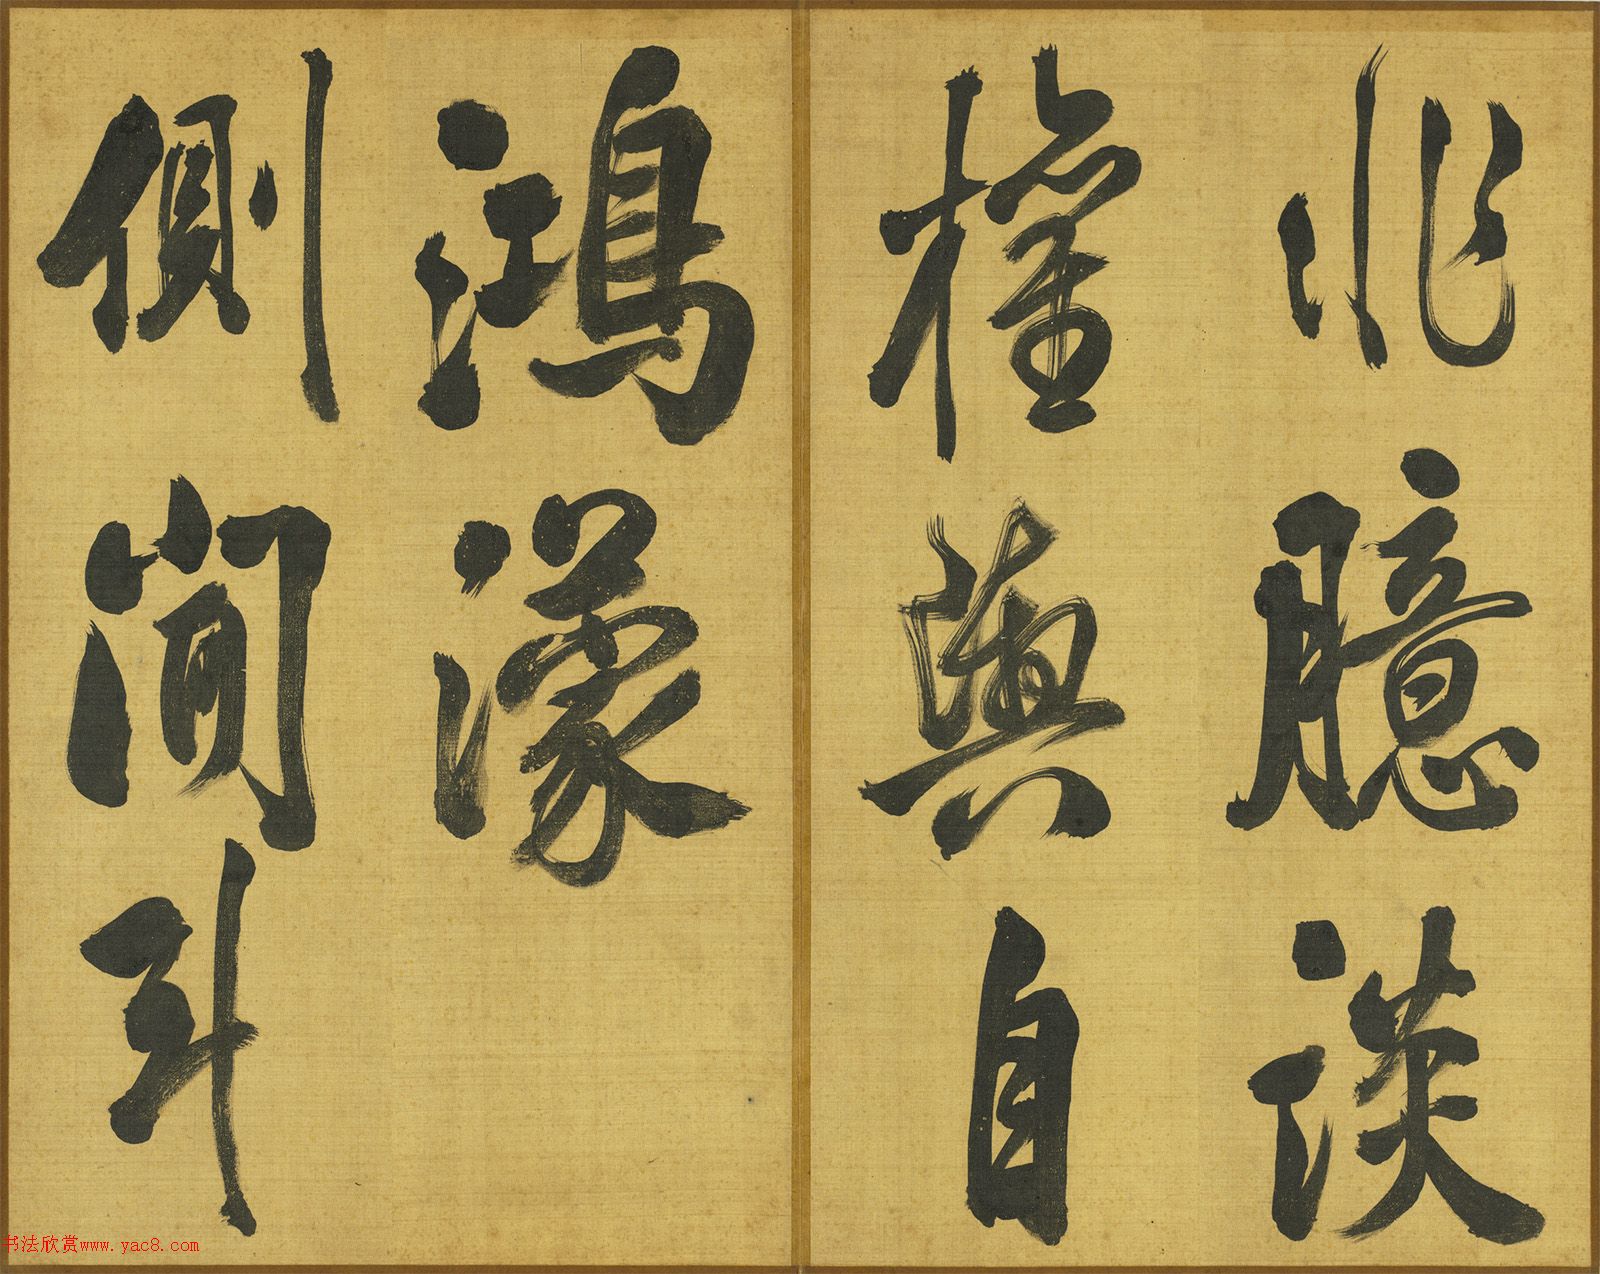 非臆談
權輿自
鴻濛
側聞斗
书法欣赏www.yac8.com